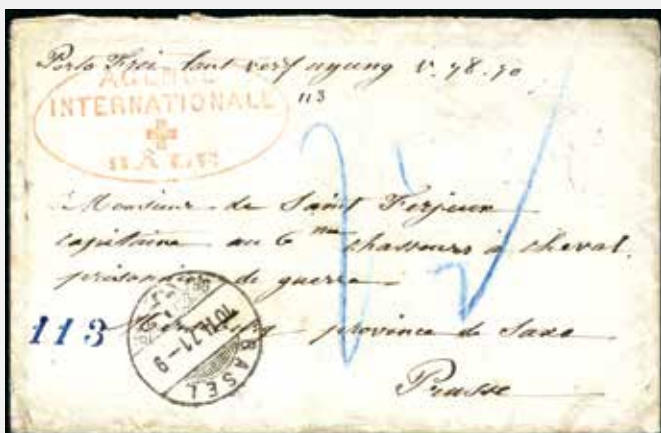 Porto Frei laut verfügung v. 98.70
AGENCE
INTERNATIONALE
BÂLE
113
Monsieur de Saint Ferjeux
capitaine au 6me chasseurs à cheval
prisonnier de guerre
113
province de Saxe
Prusse
BASEL
10 II 71-9